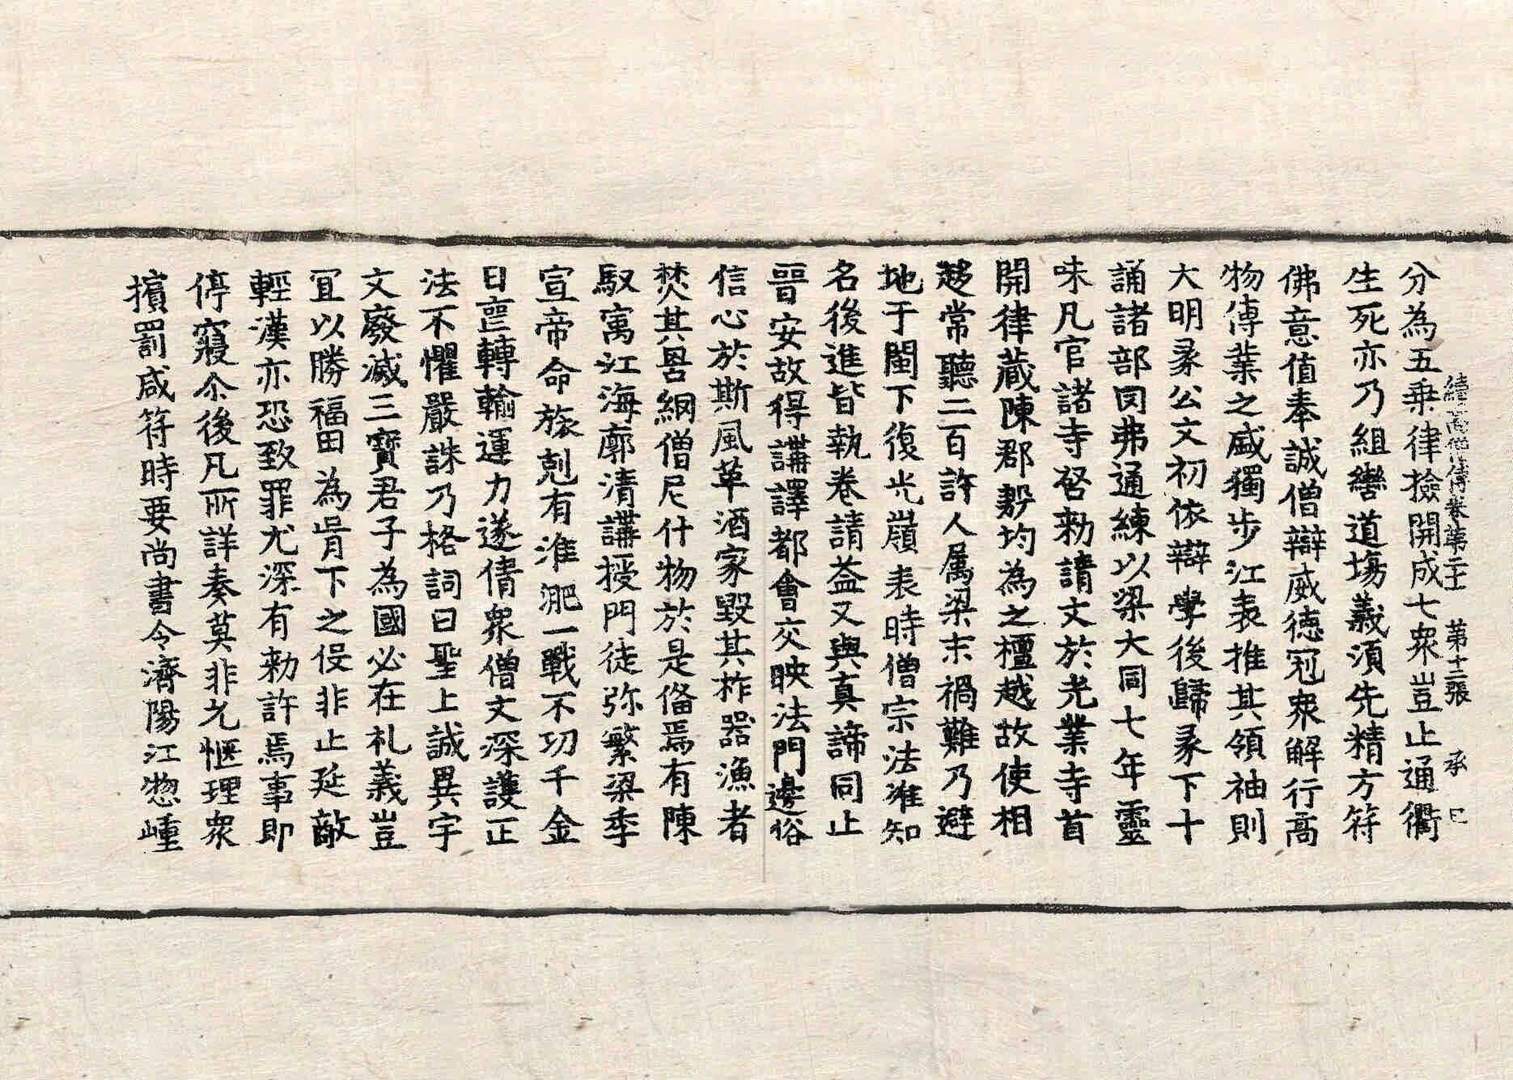 續高僧傳卷第二十一 第十二張 承 巳
分為五乗律撿開成七衆豈止通衢
生死亦乃組轡道場義須先精方符
佛意值奉誠僧辯威徳冠衆解行高
物傅業之盛獨步江表推其領袖則
大明彖公文初依辯學後歸彖下十
誦諸部罔弗通練以梁大同七年靈
味凡官諸寺啓勑請文於光業寺首
開律藏陳郡㪇均為之檀越故使相
趍常聽二百許人属梁末禍難乃避
地于閩下復光嶺表時僧宗法准知
名後進皆執卷請益又與真諦同止
晋安故得講譯都會交映法門邊俗
信心於斯風革酒家毀其柞器漁者
焚其罟網僧尼什物於是俻焉有陳
馭寓江海廓清講授門徒弥繁梁季
宣帝命旅剋有淮淝一戰不功千金
日䘮轉輸運力遂倩衆僧文深護正
法不懼嚴誅乃格詞曰聖上誠異宇
文廢滅三寶君子為國必在礼義豈
冝以勝福田為胥下之伇非止延敵
輕漢亦恐致罪尤深有勑許焉事即
停寢尒後凡所詳奏莫非允愜理衆
擯罰咸符時要尚書令濟陽江惣嵕